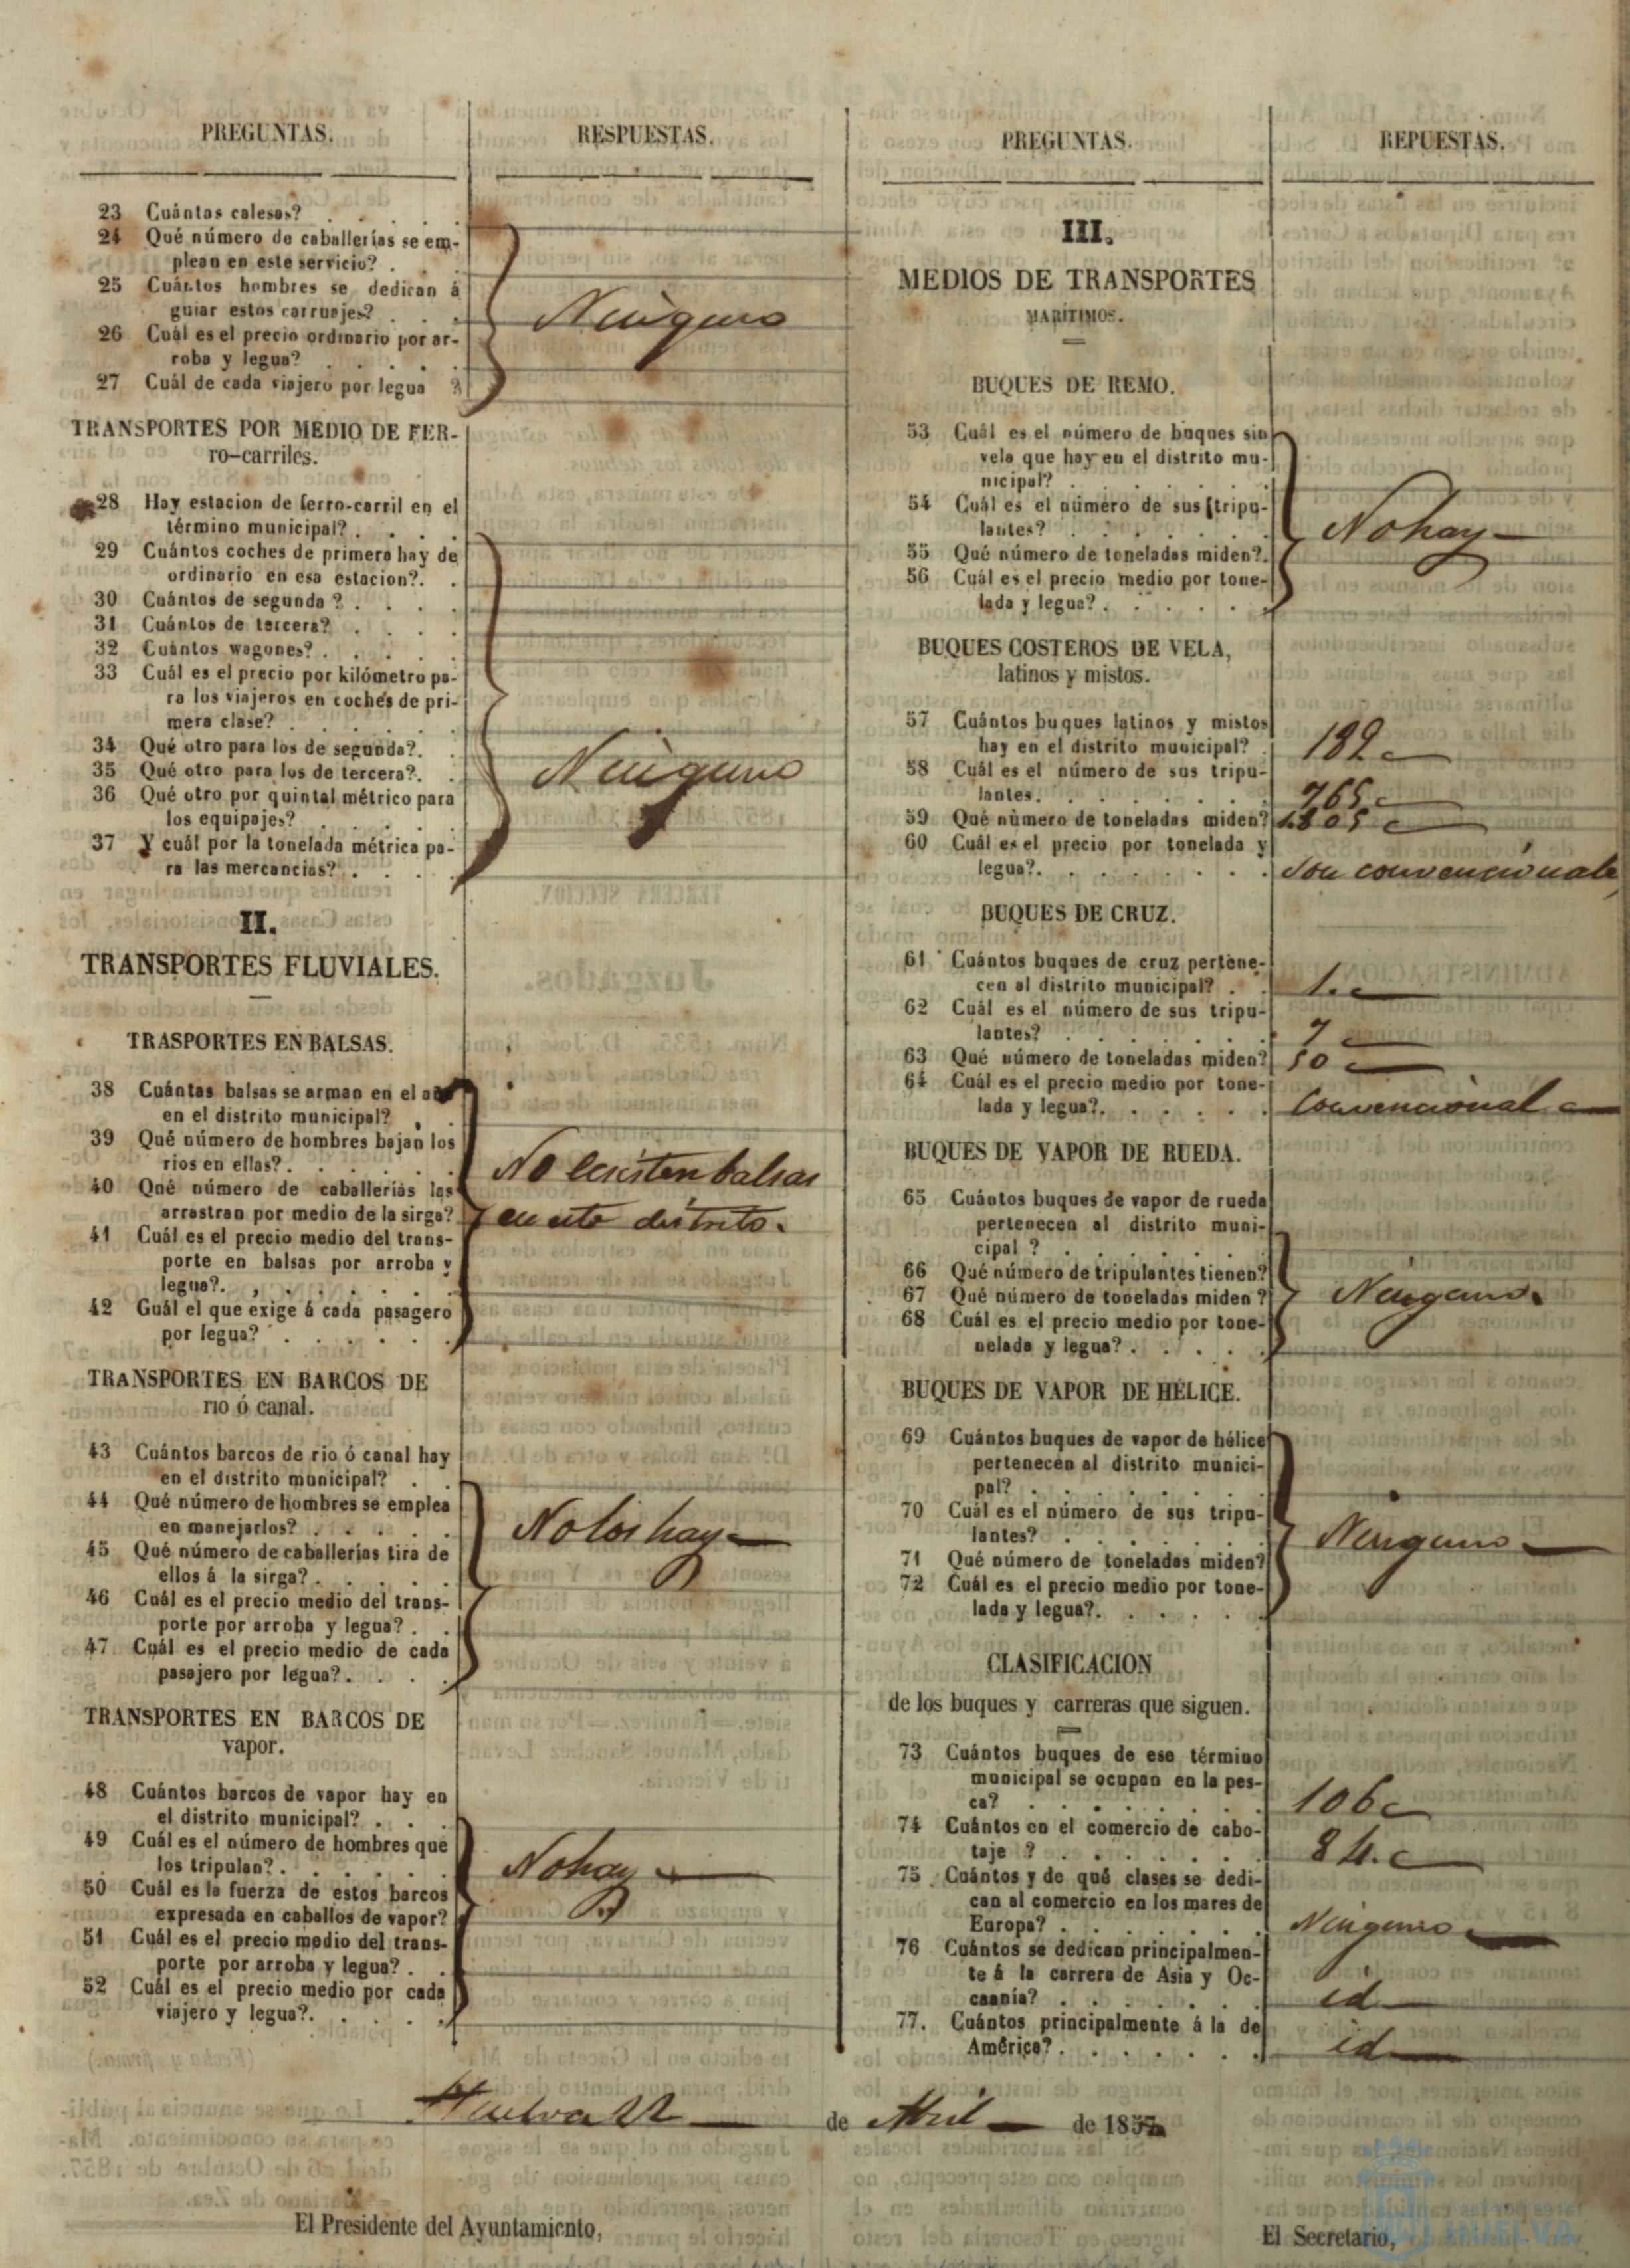 PREGUNTAS.
RESPUESTAS.
23 Cuántas calesas? . . . . .
24 Qué número de caballerías se em-
plean en este servicio? . . .
25 Cuántos hombres se dedican á
guiar estos carruajes? . . .
26 Cuál es el precio ordinario por ar-
roba y legua? . . . . .
27 Cuál de cada viajero por legua ?
Ninguno
TRANSPORTES POR MEDIO DE FER-
ro-carriles.
28 Hay estacion de ferro-carril en el
término municipal? . . . .
29 Cuántos coches de primera hay de
ordinario en esa estacion?. .
30 Cuántos de segunda ? . . . .
31 Cuántos de tercera? . . . .
32 Cuántos wagones? . . . . .
33 Cuál es el precio por kilómetro pa-
ra los viajeros en coches de pri-
mera clase? . . . . . .
34 Qué otro para los de segunda?. .
35 Qué otro para los de tercera?. .
36 Qué otro por quintal métrico para
los equipajes? . . . . .
37 Y cuál por la tonelada métrica pa-
ra las mercancias? . . . .
Ninguno
II.
TRANSPORTES FLUVIALES.
TRASPORTES EN BALSAS.
38 Cuántas balsas se arman en el año
en el distrito municipal? . .
39 Qué número de hombres bajan los
rios en ellas? . . . . . .
40 Qné número de caballerías las
arrastran por medio de la sirga?
41 Cuál es el precio medio del trans-
porte en balsas por arroba y
legua?. , . . . . .
42 Guál el que exige á cada pasagero
por legua? . . . . . .
No ecsisten balsas
en este distrito.
TRANSPORTES EN BARCOS DE
rio ó canal.
43 Cuántos barcos de rio ó canal hay
en el distrito municipal? . .
44 Qué número de hombres se emplea
en manejarlos? . . . . .
45 Qué número de caballerías tira de
ellos á la sirga? . . . . .
46 Cuál es el precio medio del trans-
porte por arroba y legua? . .
47 Cuál es el precio medio de cada
pasajero por legua? . . . .
No los hay
TRANSPORTES EN BARCOS DE
vapor.
48 Cuántos barcos de vapor hay en
el distrito municipal? . . .
49 Cuál es el número de hombres que
los tripulan? . . . . . .
50 Cuál es la fuerza de estos barcos
expresada en caballos de vapor?
51 Cuál es el precio medio del trans-
porte por arroba y legua? . .
52 Cuál es el precio medio por cada
viajero y legua?. . . . .
No hay
PREGUNTAS.
REPUESTAS.
III.
MEDIOS DE TRANSPORTES
MARÍTIMOS.
BUQUES DE REMO.
53 Cuál es el número de buques sin
vela que hay en el distrito mu-
nicipal? . . . . . .
54 Cuál es el número de sus tripu-
lantes? . . . . . .
55 Qué número de toneladas miden?.
56 Cuál es el precio medio por tone-
lada y legua? . . . . . .
No hay
BUQUES COSTEROS DE VELA,
latinos y mistos.
57 Cuántos buques latinos y mistos
hay en el distrito municipal? .
189
58 Cuál es el número de sus tripu-
lantes. . . . . . . .
765
59 Qué número de toneladas miden?
1.805
60 Cuál es el precio por tonelada y
legua?. . . . . . . .
Son convencionale
BUQUES DE CRUZ.
61 Cuántos buques de cruz pertene-
cen al distrito municipal? . .
1.
62 Cuál es el número de sus tripu-
lantes? . . . . . .
7
63 Qué número de toneladas miden?
50
64 Cuál es el precio medio por tone-
lada y legua?. . . . . .
Convencional
BUQUES DE VAPOR DE RUEDA.
65 Cuántos buques de vapor de rueda
pertenecen al distrito muni-
cipal ? . . . . . .
66 Qué número de tripulantes tienen?
67 Qué número de toneladas miden ?
68 Cuál es el precio medio por tone-
nelada y legua? . . . . .
Ninguno.
BUQUES DE VAPOR DE HÉLICE.
69 Cuántos buques de vapor de hélice
pertenecen al distrito munici-
pal? . . . . . . .
70 Cuál es el número de sus tripu-
lantes? . . . . . .
71 Qué número de toneladas miden?
72 Cuál es el precio medio por tone-
lada y legua?. . . . . .
Ninguno
CLASIFICACION
de los buques y carreras que siguen.
73 Cuántos buques de ese término
municipal se ocupan en la pes-
ca? . . . . . . .
106
74 Cuántos en el comercio de cabo-
taje ? . . . . . .
84.
75 Cuántos y de qué clases se dedi-
can al comercio en los mares de
Europa? . . . . . .
Ninguno
76 Cuántos se dedican principalmen-
te á la carrera de Asia y Oc-
caanía? . . . . . .
id
77. Cuántos principalmente á la de
América? . . . . . . .
id
Huelva 22 de Abril de 185
El Presidente del Ayuntamiento,
El Secretario,
HUELVA